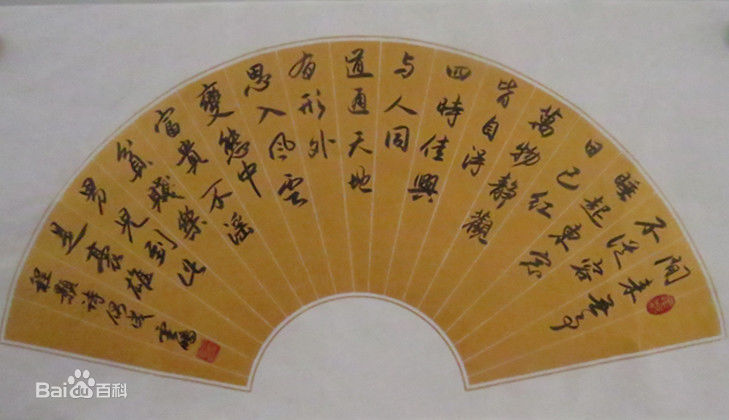 閒来無事
不從容
睡起東窗
日已紅
萬物静觀
皆自得
四時佳興
与人同
道通天地
有形外
思入风雲
變態中
富貴不淫
貧賤樂
男兒到此
是豪雄
程颢诗偶成
Bai百科